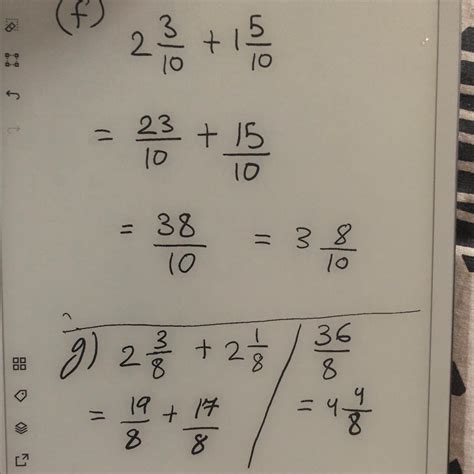 (f)
2 3/10 + 1 5/10
= 23/10 + 15/10
= 38/10 = 3 8/10
g) 2 3/8 + 2 1/8
= 19/8 + 17/8
36/8
= 4 4/8